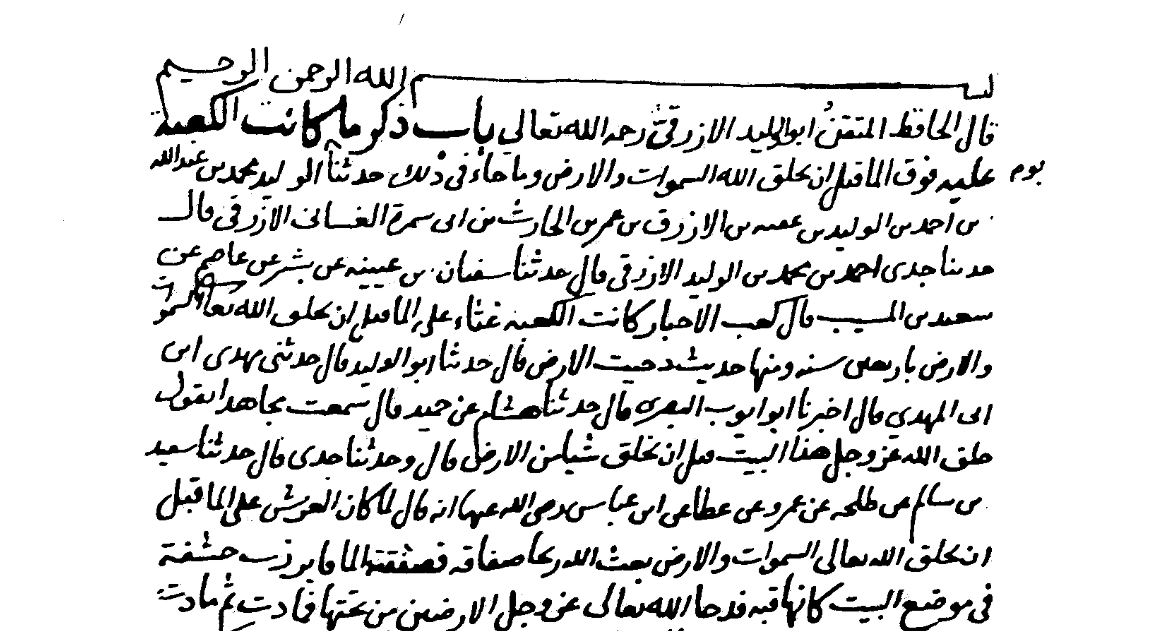 بسم الله الرحمن الرحيم
قال الحافظ المتقن ابو الوليد الازرقي رحمه الله تعالي باب ذكر ما كانت الكعبة
عليه فوق الما قبل ان يخلق الله السموات والارض وما جاء في ذلك حدثنا ابو الوليد محمد بن عبد الله يوم
بن احمد بن الوليد بن عقبه بن الازرق بن عمر بن الحارث بن ابى سمرة الغسانى الازرقي قال
حدثنا جدى احمد بن محمد بن الوليد الازرقي قال حدثنا سفيان بن عيينه عن بشر عن عاصم عن
سعيد بن المسيب قال كعب الاحبار كانت الكعبه غثاء على الما قبل ان يخلق الله تعالى السموات
والارض باربعين سنه ومنها حديث دحيت الارض قال حدثنا ابو الوليد قال حدثنى مهدى ابن
ابى المهدي قال اخبرنا ابو ايوب البصرى قال حدثنا هشام عن حميد قال سمعت مجاهدا يقول
خلق الله عز وجل هذا البيت قبل ان يخلق شيا من الارض قال وحدثنا جدى قال حدثنا سعيد
بن سالم عن طلحه عن عمرو عن عطا عن ابن عباس رضى الله عنها انه قال لما كان العرش على الما قبل
ان يخلق الله تعالى السموات والارض بعث الله ريحا صفاقه فصفقت الما فابرزت خشفة
في موضع البيت كانها قبه فدحا الله تعالى عز وجل الارضين من تحتها فمادت ثم مادت